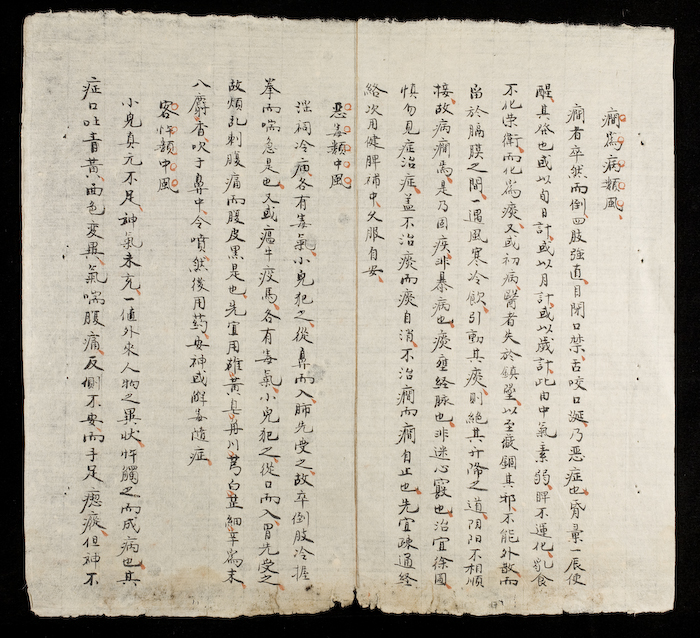 癇爲病類風
癇者卒然而倒四肢強直目閉口禁舌咬口涎乃悪症也昏暈一辰使
醒其發也或以旬日計或以月計或以歲計此由中氣素弱脾不運化乳食
不化榮衛而化爲痰又或初病醫者失於鎮墜以至癡錮其邪不能外散而
留於膈膜之間一遇風寒冷飲引動其痰則絕其升降之道阴阳不相順
接故病癇焉是乃固疾非暴病也痰壅経脉也非迷心竅也治宜徐圖
慎勿見症治症盖不治痰而痰自消不治癇而癇自止也先宜疎通経
絡次用健脾補中久服自安
悪毒類中風
滛祠冷庙各有毒氣小兒犯之從鼻而入肺先受之故卒倒肢冷握
拳而喘急是也又或瘟牛疫馬各有毒氣小兒犯之從口而入胃先受之
故煩乱刺腹痛而腹皮黑是也先宜用雄黄真丹川芎白芷細辛爲末
入麝香吹于鼻中令噴然後用药安神或觧毒隨症
客忤類中風
小兒真元不足神氣未充一值外來人物之異状忤觸之而成病也其
症口吐青黃面色変異氣喘腹痛反側不安而手足瘛瘲但神不